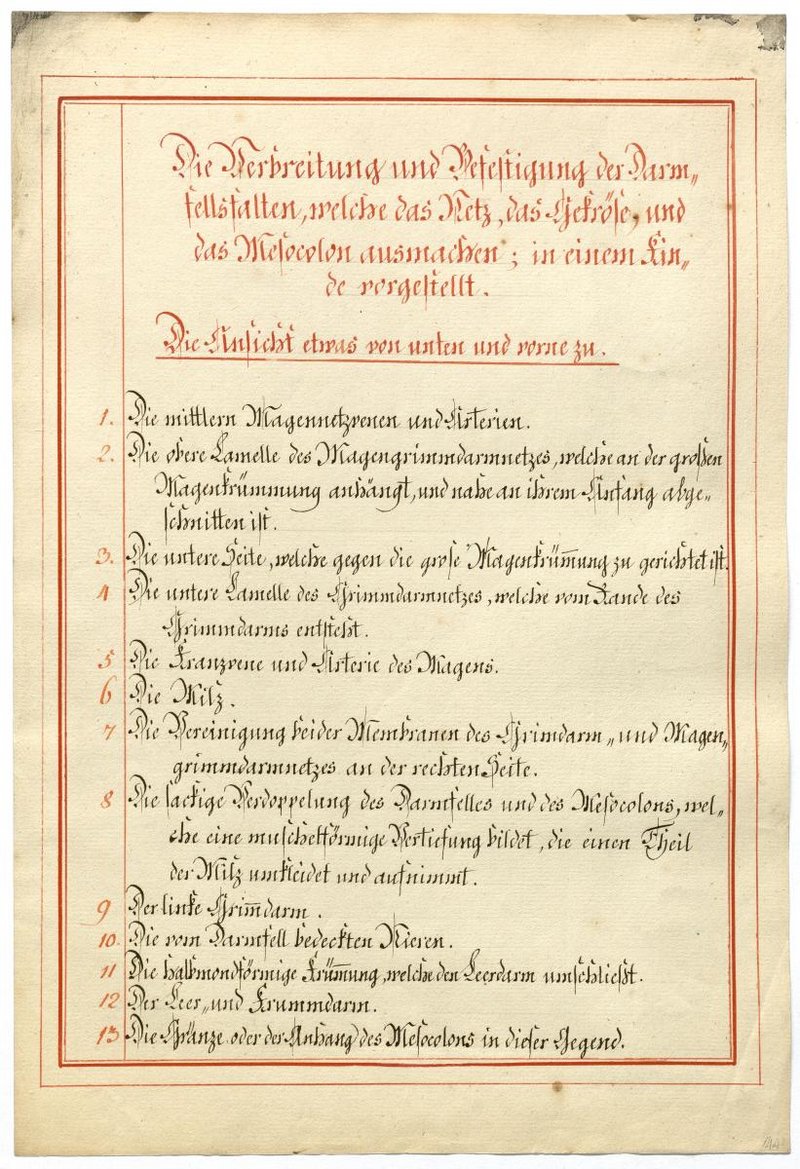 Die Verbreitung und Befestigung der Darm„
fellsfalten, welche das Netz, das Gekröse, und
das Mesocolon ausmachen; in einem Kin„
de vorgestellt.
Die Ansicht etwas von unten und vorne zu.
1. Die mittlern Magennetzvenen und Arterien.
2. Die obere Lamelle des Magengrimmdarmnetzes, welche an der großen
Magenkrümmung anhängt, und nahe an ihrem Anfang abge„
schnitten ist.
3. Die untere Seite, welche gegen die grose Magenkrüm̅ung zu gerichtet ist.
4 Die untere Lamelle des Grimmdarmnetzes, welche vom Rande des
Grimmdarms entsteht.
5 Die Kranzvene und Arterie des Magens.
6 Die Milz.
7 Die Vereinigung beider Membranen des Grimdarm„ und Magen„
grimmdarmnetzes an der rechten Seite.
8 Die sackige Verdoppelung des Darmfelles und des Mesocolons, wel„
che eine muschelförmige Vertiefung bildet, die einen Theil
der Milz umkleidet und aufnimmt.
9 Der linke Grim̅darm.
10. Die vom Darmfell bedeckten Nieren.
11 Die halbmondförmige Krüm̅ung, welche den Leerdarm umschließt.
12 Der Leer„ und Krummdarm.
13 Die Gränze oder der Anhang des Mesocolons in dieser Gegend.